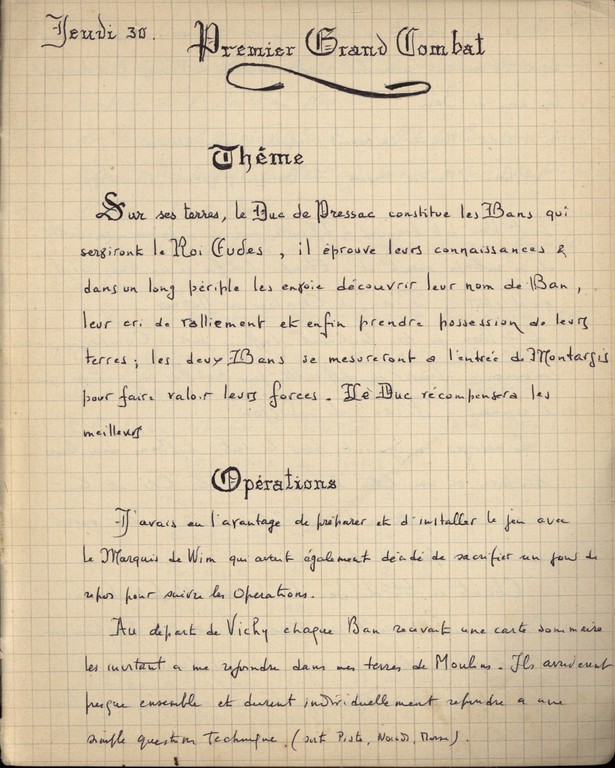 Jeudi 30.
Premier Grand Combat
Thême
Sur ses terres, le Duc de Pressac constitue les Bans qui
serviront le Roi Eudes, il éprouve leurs connaissances &
dans un long périple les envoie découvrir leur nom de Ban,
leur cri de ralliement et enfin prendre possession de leurs
terres; les deux Bans se mesureront a l'entrée de Montargis
pour faire valoir leurs forces. Le Duc récompensera les
meilleurs
Opérations
J'avais eu l'avantage de préparer et d'installer le jeu avec
le Marquis de Wim qui avait également décidé de sacrifier un jour de
repos pour suivre les Operations.
Au départ de Vichy chaque Ban recevait une carte sommaire
les invitant a me rejoindre dans mes terres de Moulins. Ils arrivèrent
presque ensemble et durent individuellement repondre a une
simple question technique. (soit Piste, Noeuds, Morse).